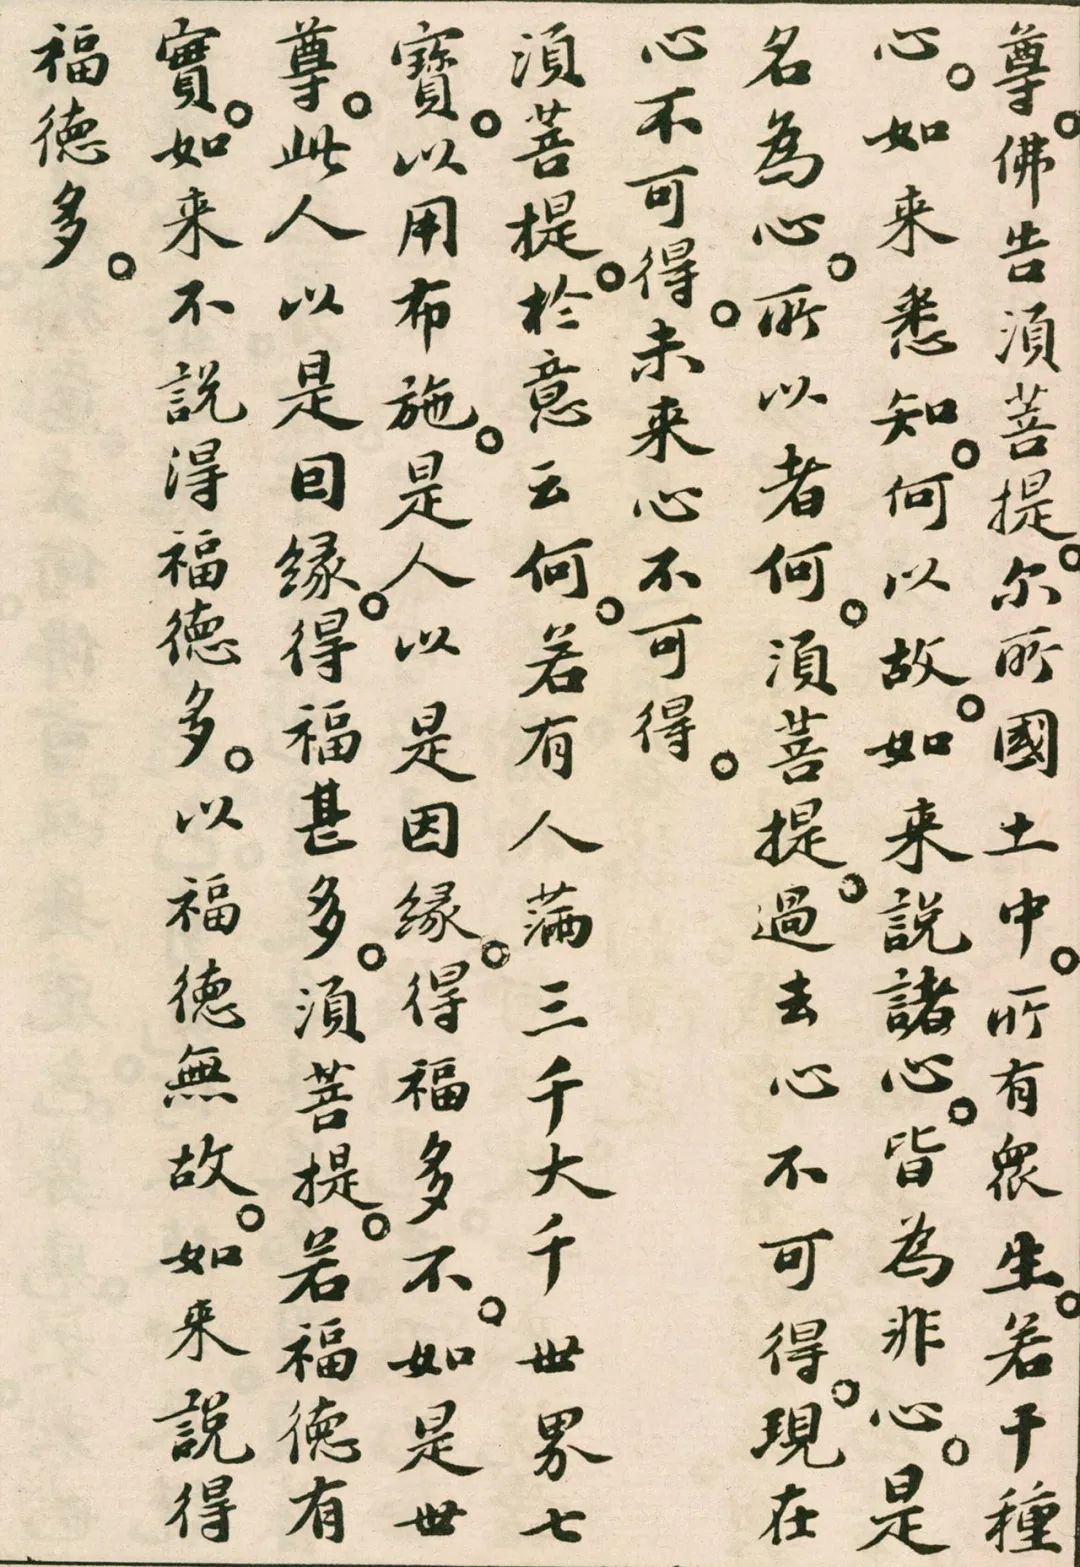 尊。佛告須菩提。尔所國土中。所有眾生。若干種
心。如来悉知。何以故。如来説諸心。皆為非心。是
名為心。所以者何。須菩提。過去心不可得。現在
心不可得。未来心不可得。
須菩提。於意云何。若有人滿三千大千世界七
寶。以用布施。是人以是因緣。得福多不。如是世
尊。此人以是因緣。得福甚多。須菩提。若福德有
實。如来不説得福德多。以福德無故。如来説得
福德多。